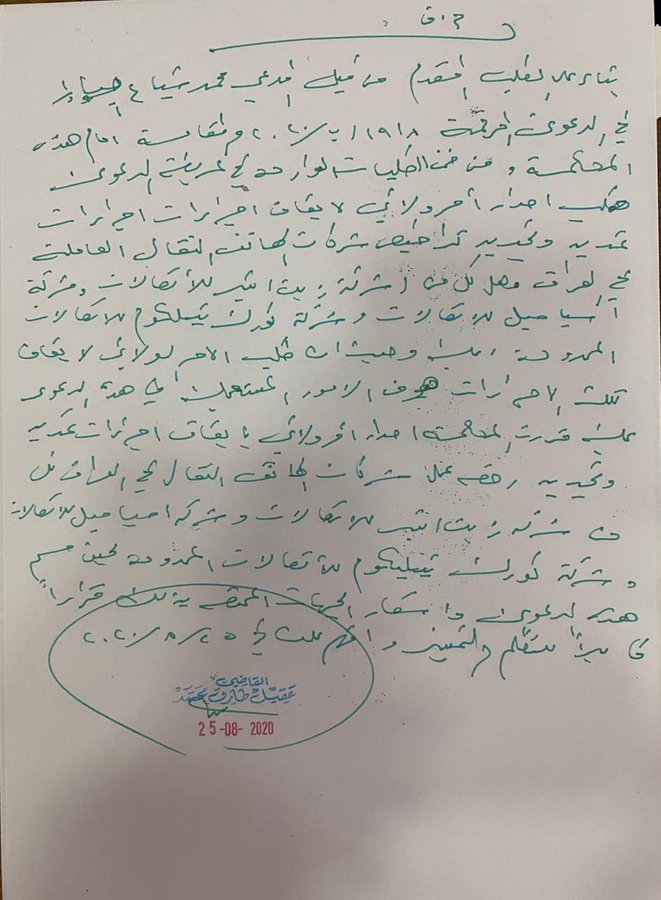 م. ق
بناء على الطلب المقدم من قبل المدعي محمد شياع
في الدعوى المرقمة ١٩١٨/ب/٢٠٢٠ والمقامة امام هذه
المحكمة ومن ضمن الطلبات الواردة في عريضة الدعوى
طلب اصدار أمر ولائي لايقاف اجراءات اجراءات
تمديد وتجديد تراخيص شركات الهاتف النقال العاملة
في العراق وهل كل من (شركة زين اثير للأتصالات وشركة
آسياسيل للاتصالات وشركة كورك تيليكوم للاتصالات
المحدودة عليه وحيث ان طلب الامر الولائي لايقاف
تلك الاجراءات هو من الامور المستعجلة في هذه الدعوى
عليه قررت المحكمة اصدار أمر ولائي بايقاف اجراءات تمديد
وتجديد رخصة عمل شركات الهاتف النقال في العراق كل
من شركة زين اثير للاتصالات وشركة اسياسيل للاتصالات
وشركة كورك تيليكوم للأتصالات المحدودة لحين حسم
هذه الدعوى واشعار الجهات المختصة بذلك قراراً
قابلاً للتظلم والتمييز وافهم علنا في ٢٠٢٠/٨/٢٥
القاضي
عقيل طارق
25-08-2020